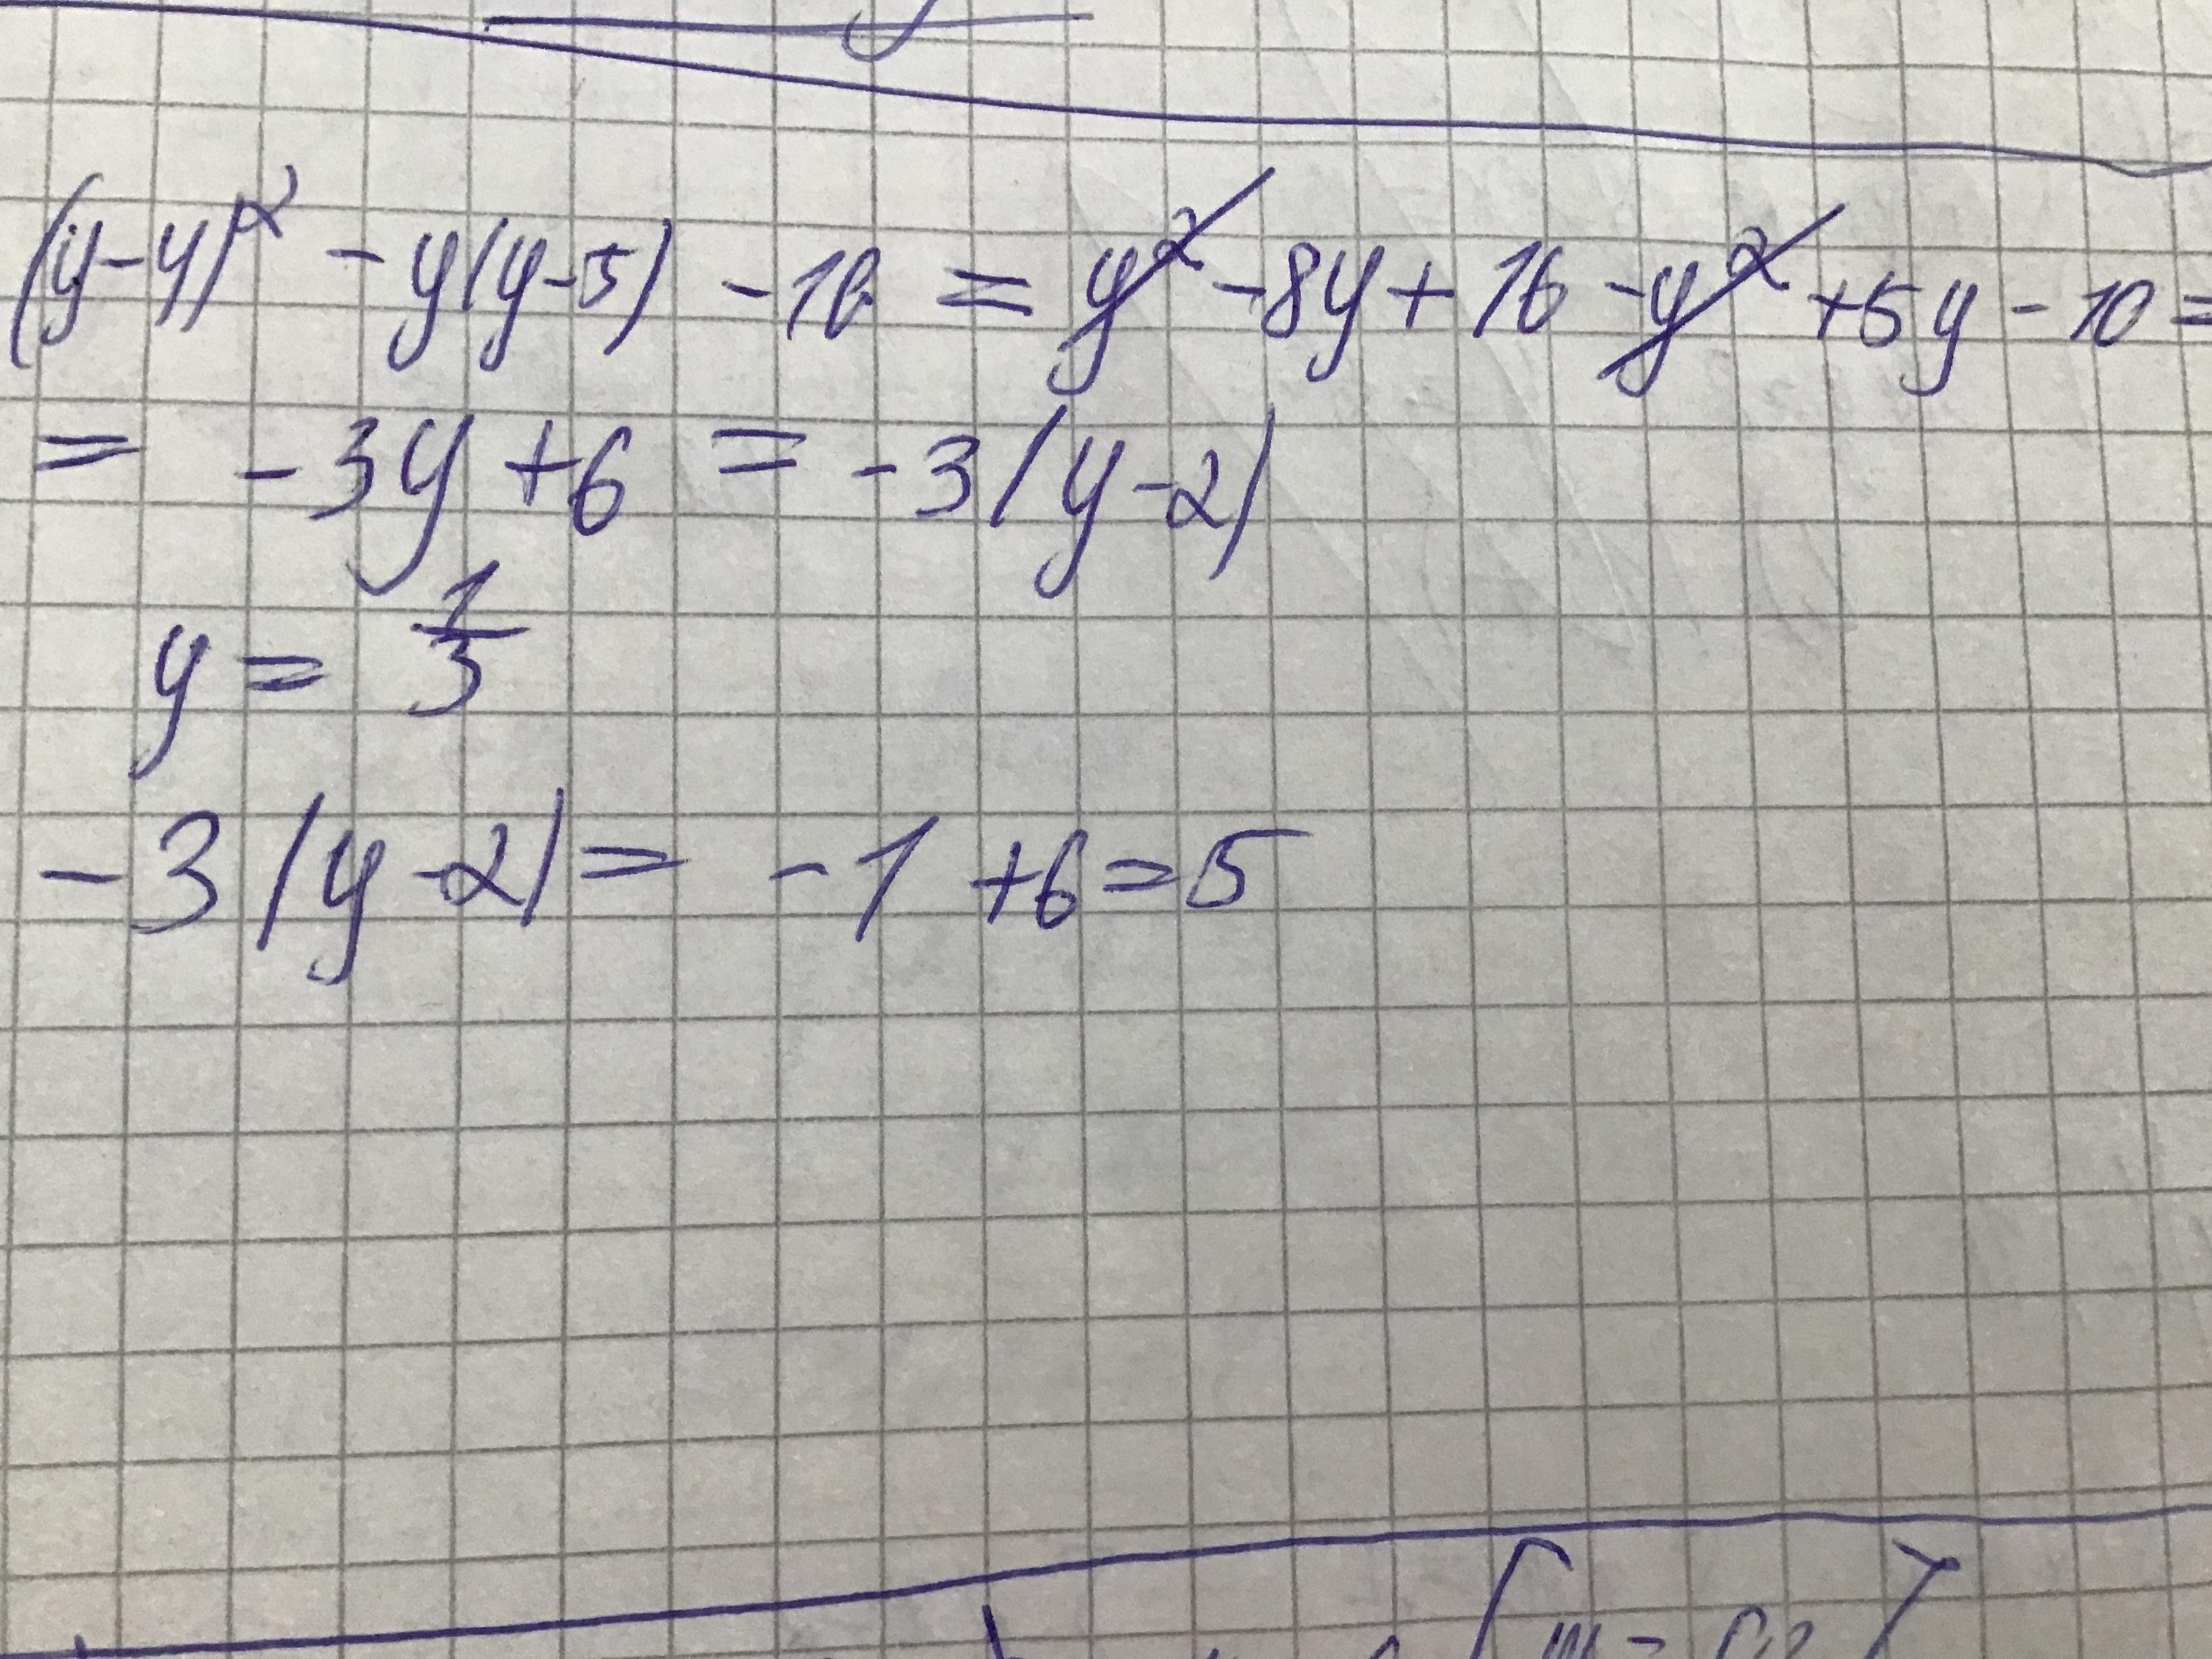 (y-4)² - y(y-5) - 10 = y² - 8y + 16 - y² + 5y - 10 =
= -3y + 6 = -3(y-2)
y = 1/3
-3(y-2) = -1 + 6 = 5